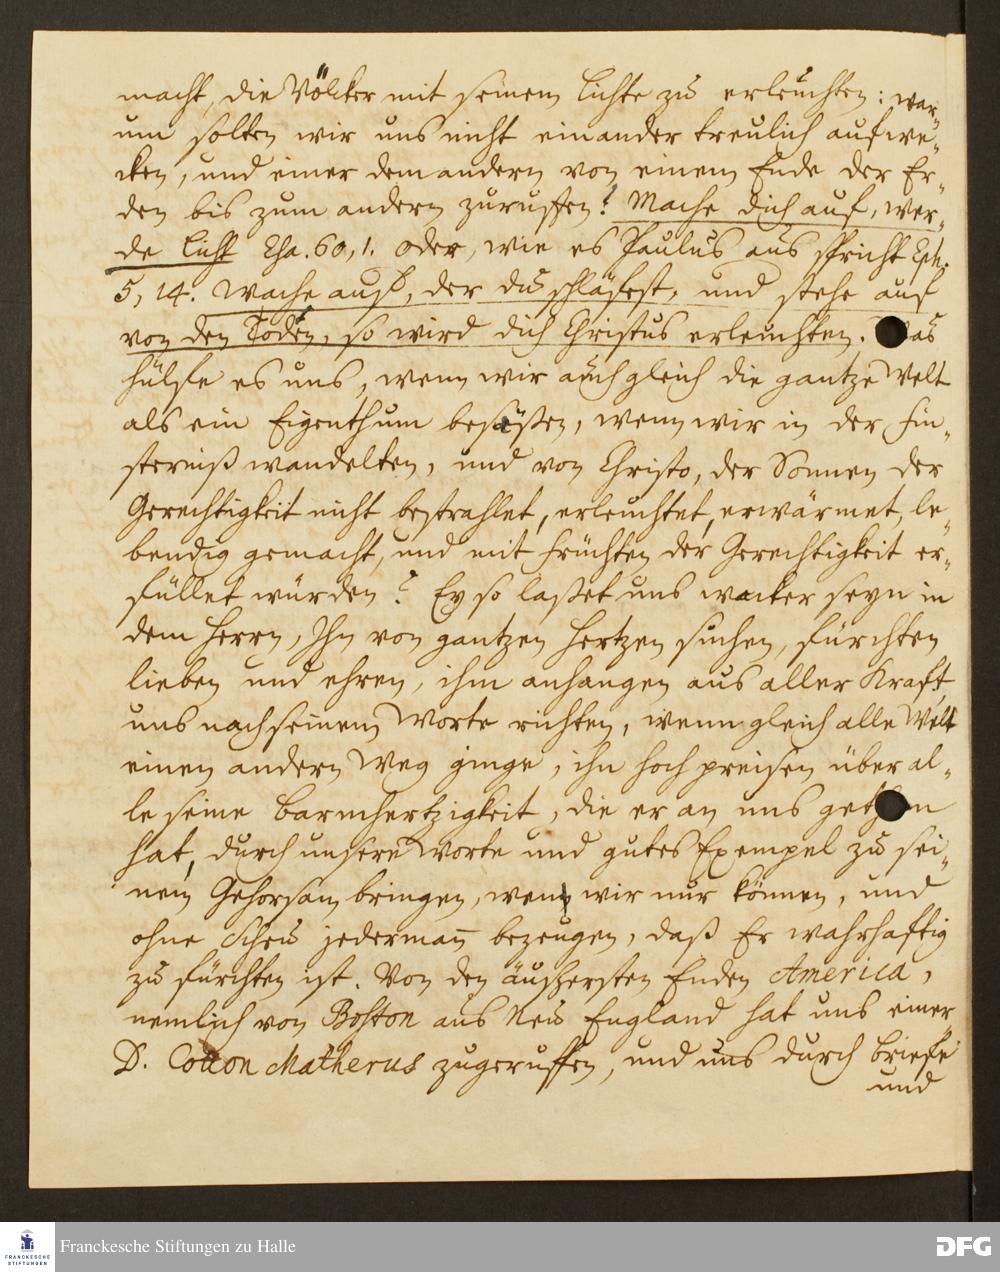 macht, die Völcker mit seinem Lichte zu erleuchten: war-
um solten wir uns nicht einander treulich aufwe-
cken, und einer dem andern von einem Ende der Er-
den bis zum andern zuruffen! Mache dich auf, wer-
de Licht Esa. 60, 1. oder, wie es Paulus aus spricht Eph.
5, 14. Wache auf, der du schläfest, und stehe auf
von den Todten, so wird dich Christus erleuchten. Was
hülfe es uns, wenn wir auch gleich die gantze Welt
als ein Eigenthum besäßen, wenn wir in der Fin-
sterniß wandelten, und von Christo, der Sonnen der
Gerechtigkeit nicht bestrahlet, erleuchtet, erwärmet, le-
bendig gemacht, und mit Früchten der Gerechtigkeit er-
füllet würden? Ey so laßet uns wacker seyn in
dem Herrn, Ihn von gantzen Hertzen suchen, fürchten
lieben und ehren, ihm anhangen aus aller Krafft,
uns nach seinem Worte richten, wenn gleich alle Welt
einen andern Weg ginge, ihn hoch preisen über al-
le seine Barmhertzigkeit, die er an uns gethan
hat, durch unsere Worte und gutes Exempel zu sei-
nem Gehorsam bringen, wen wir nur können, und
ohne Scheu jedermañ bezeugen, daß Er wahrhaftig
zu fürchten ist. Von den äußersten Enden America,
nemlich von Boston aus Neu England hat uns einer
D. Cotton Matherus zugeruffen, und uns durch Briefe
und
Franckesche Stiftungen zu Halle
FRANCKESCHE
STIFTUNGEN
DFG